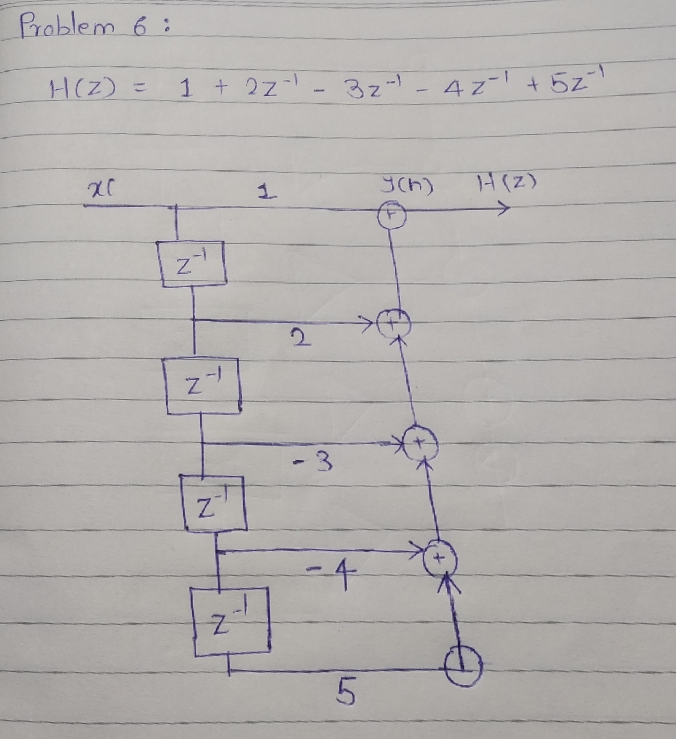 Problem 6 :
H(Z) = 1 + 2z⁻¹ - 3z⁻¹ - 4z⁻¹ + 5z⁻¹
x( 1 y(n) H(Z)
+
z⁻¹
2 +
z⁻¹
-3 +
z⁻¹
-4 +
z⁻¹
5